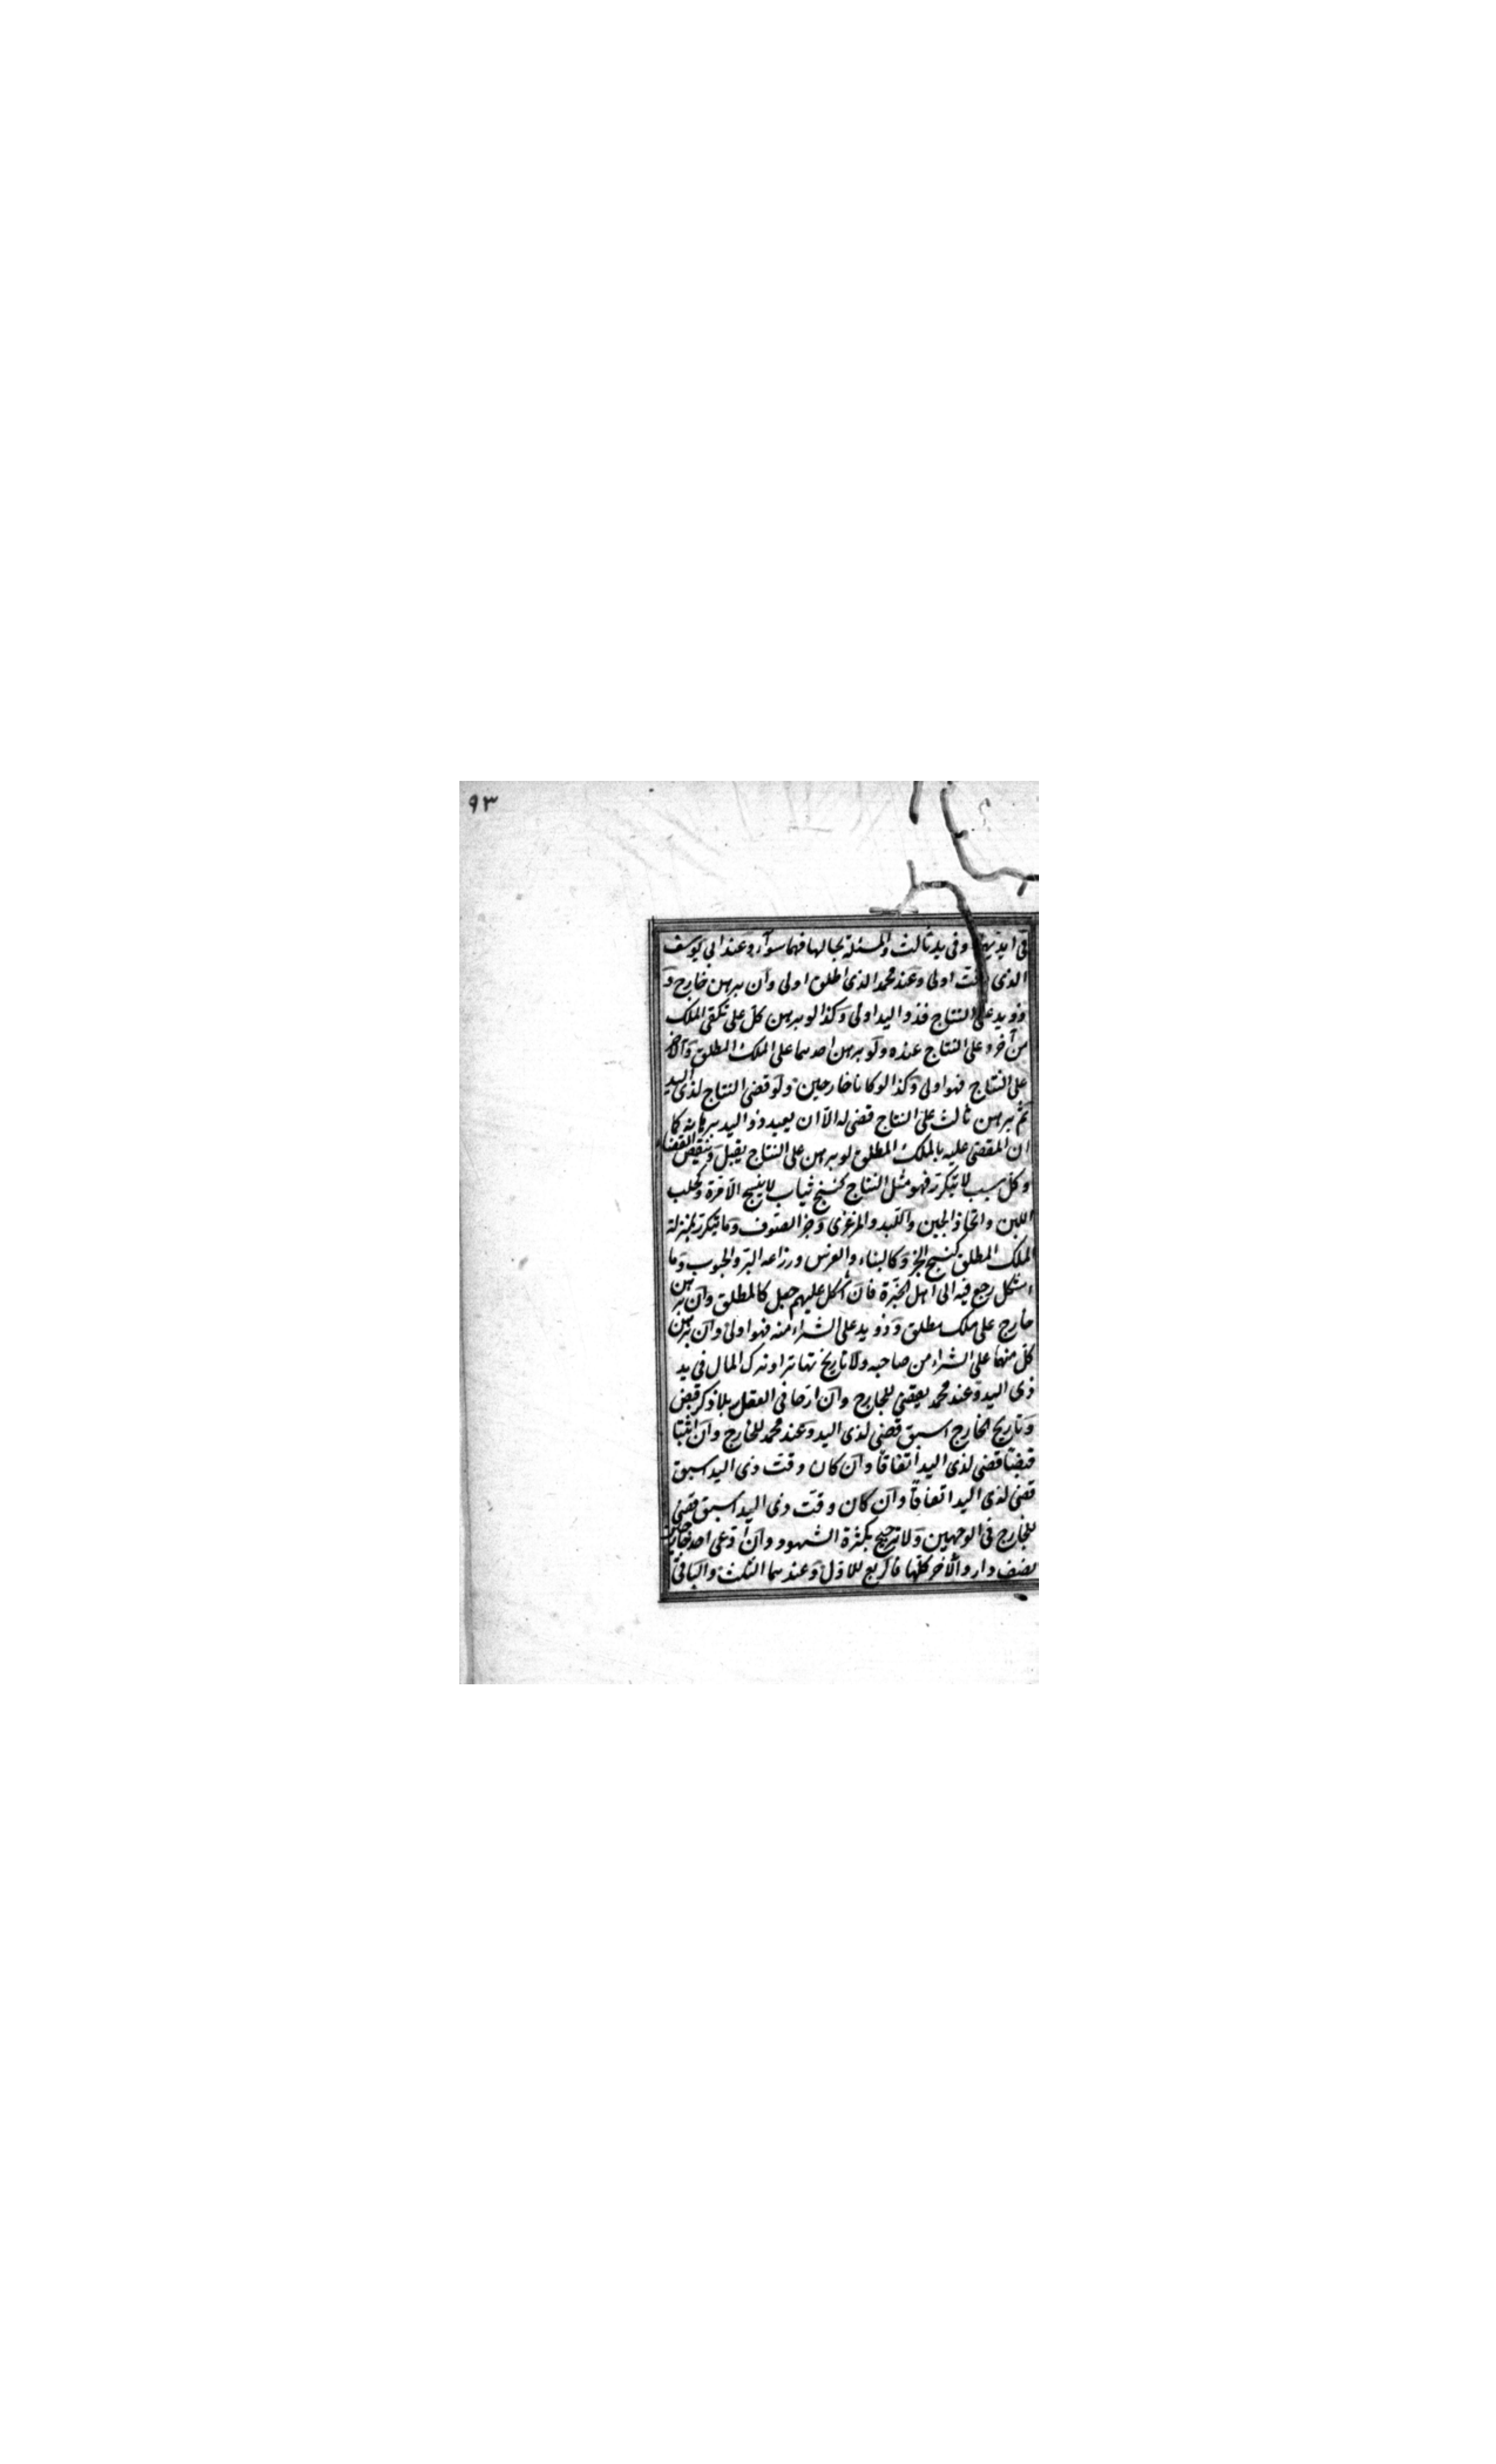 ٩٣
في ايديهما وفي يد ثالث والمسئلة بحالها فهما سوآء وعند ابي يوسف
الذي وقت اولى وعند محمد الذي اطلق اولى وان برهن خارج و
ذو يد على النتاج فذو اليد اولى وكذا لو برهن كل على تلقي الملك
من آخر وعلى النتاج عنده ولو برهن احدهما على الملك المطلق والآخر
على النتاج فهو اولى وكذا لو كانا خارجين ولو قضى النتاج لذي اليد
ثم برهن ثالث على النتاج قضى له الا ان يعيد ذو اليد برهانه كما
ان المقضى عليه بالملك المطلق لو برهن على النتاج يقبل وينقض القضاء
وكل سبب لا يتكرر فهو مثل النتاج كنسج ثياب لا ينسج الا مرة وكحلب
اللبن واتخاذ الجبن واللبد والمرعزى وجز الصوف وما يتكرر بمنزلة
الملك المطلق كنسج الخز وكالبناء والغرس وزراعه البر والحبوب وما
اشكل رجع فيه الى اهل الخبرة فان اشكل عليهم جعل كالمطلق وان برهن
خارج على ملك مطلق وذو يد على الشراء منه فهو اولى وان برهن
كل منهما على الشراء من صاحبه ولا تاريخ تهاترا وترك المال في يد
ذي اليد وعند محمد يقضى للخارج وان ارخا في العقل بلا ذكر قبض
وتاريخ الخارج اسبق قضى لذي اليد وعند محمد للخارج وان اثبتا
قبضا قضى لذي اليد اتفاقا وان كان وقت ذي اليد اسبق
قضى لذي اليد اتفاقا وان كان وقت ذي اليد اسبق قضى
للخارج في الوجهين ولا ترجيح بكثرة الشهود وان ادعى احد خارجين
نصف دار والآخر كلها فالربع للاول وعندهما الثلث والباقي